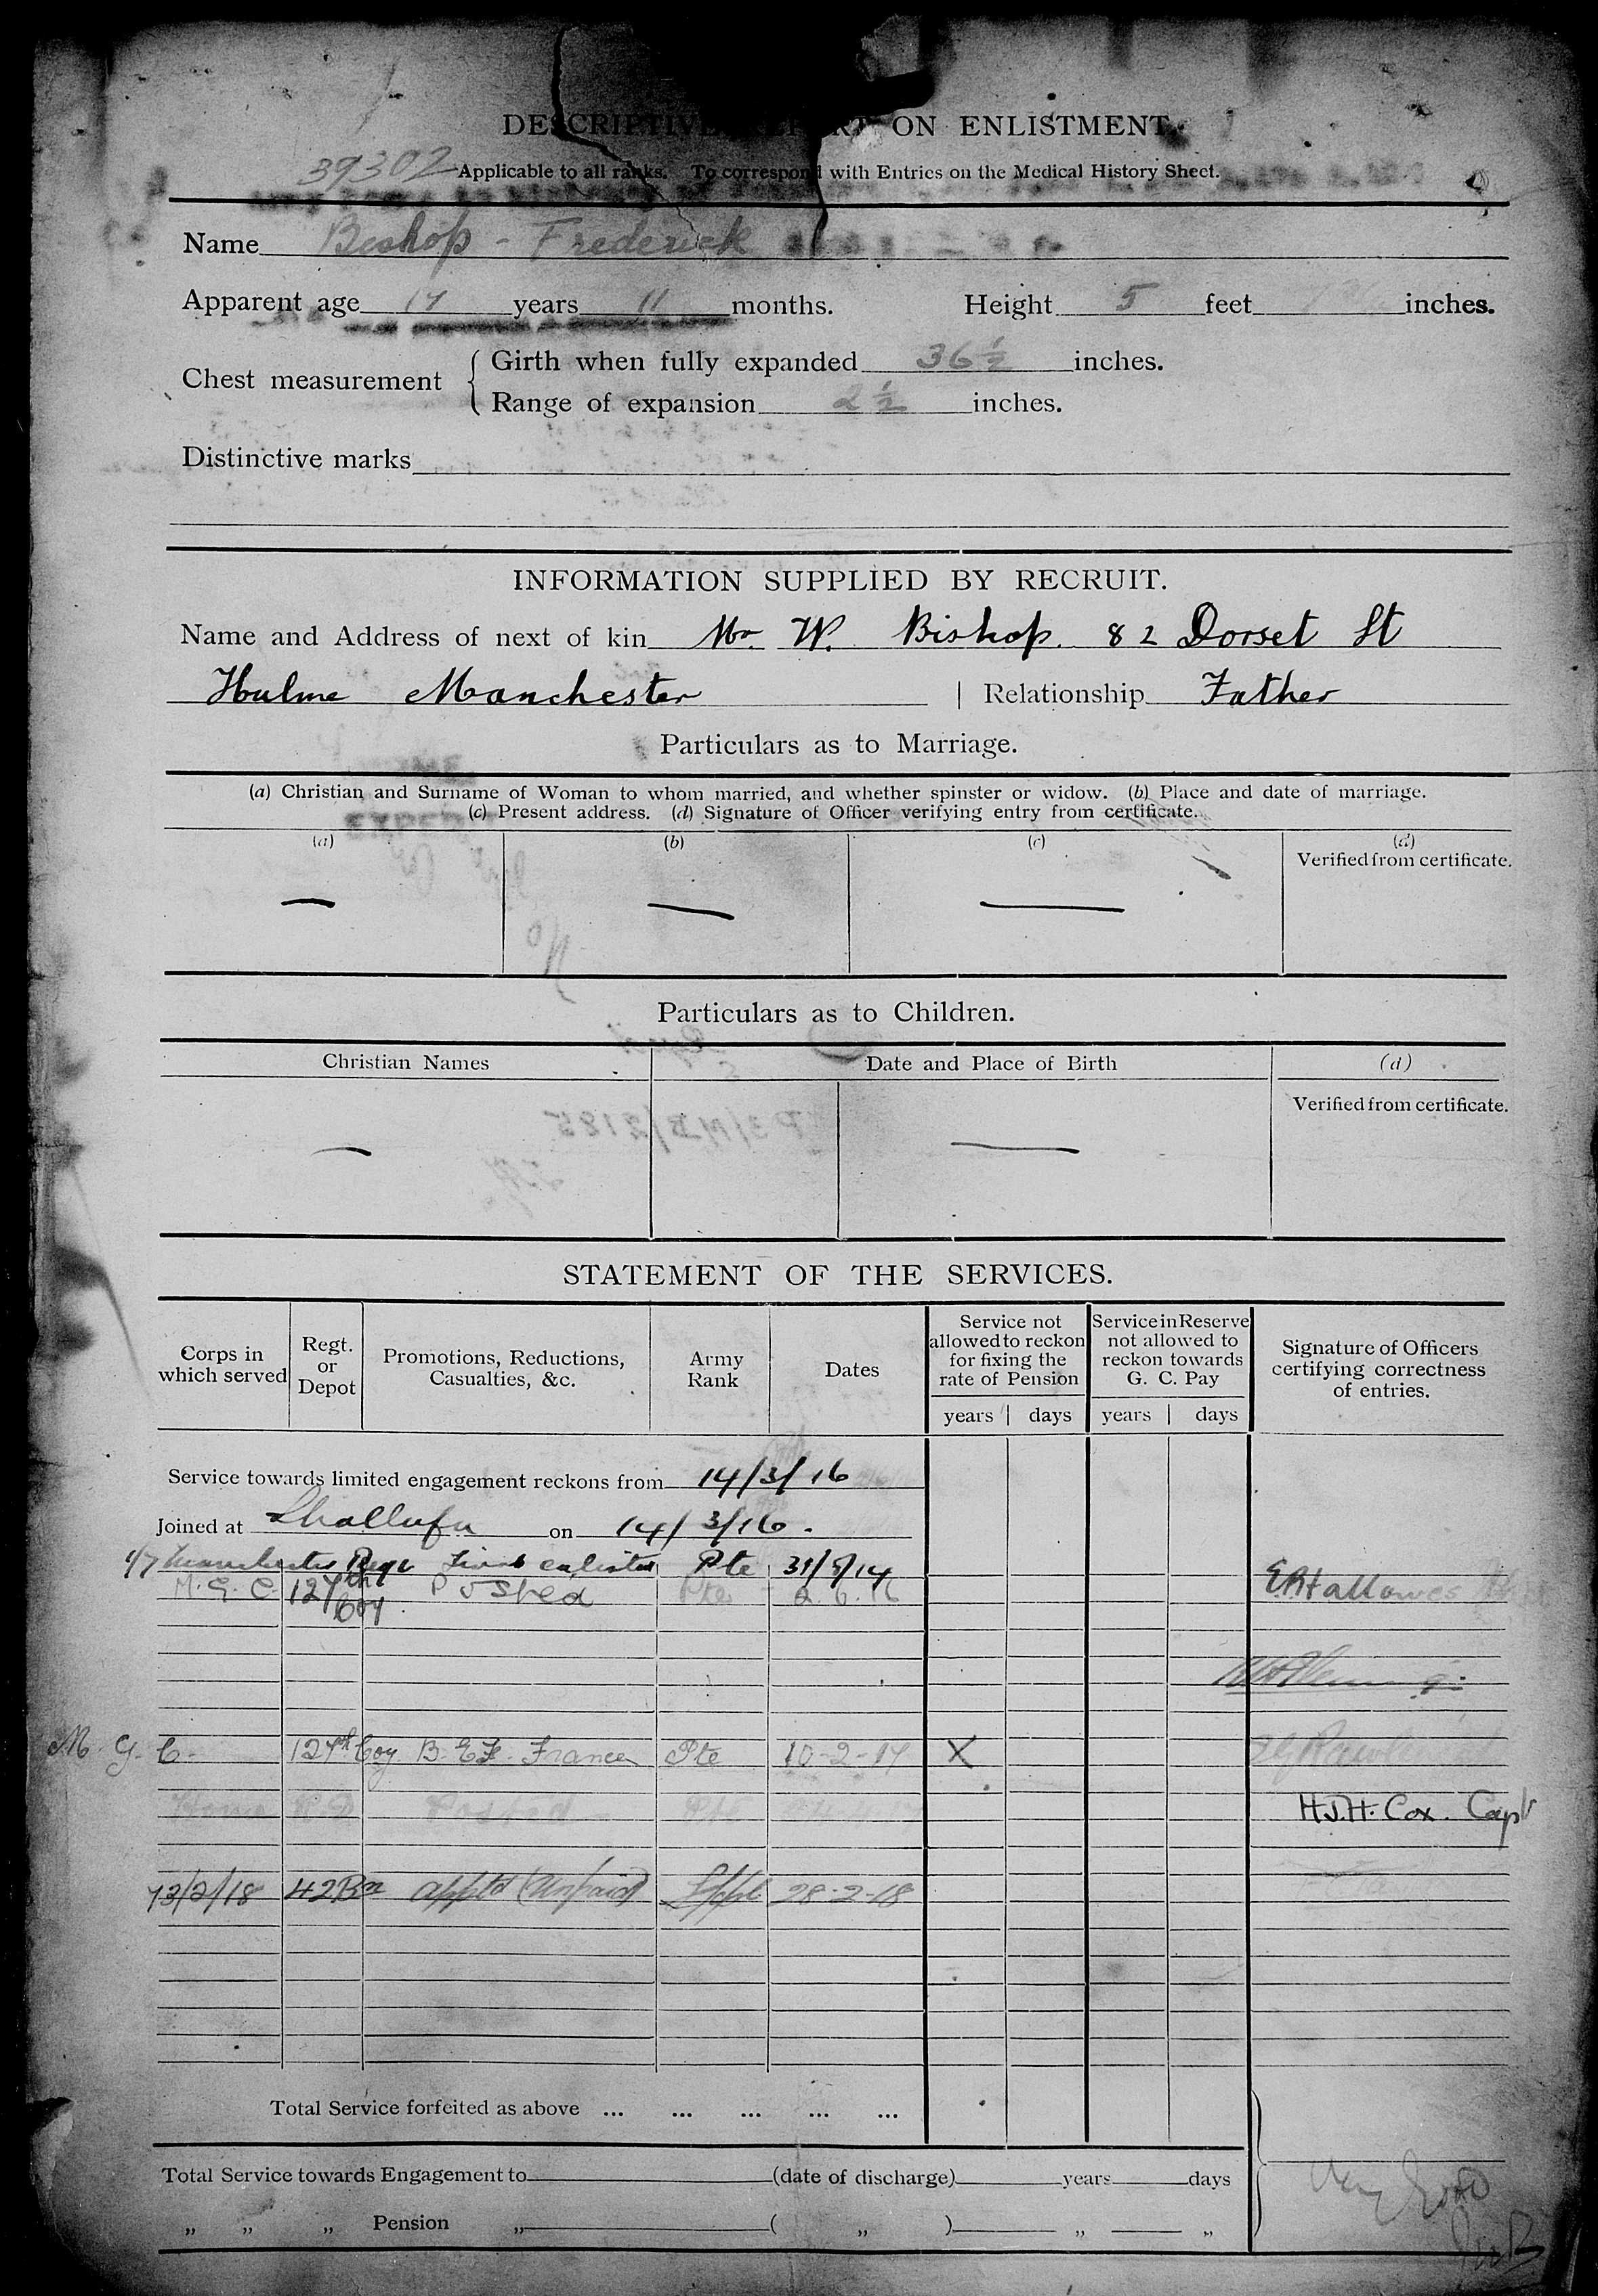 DESCRIPTIVE REPORT ON ENLISTMENT.
39302
Applicable to all ranks. To correspond with Entries on the Medical History Sheet.
Name Bishop - Frederick
Apparent age 17 years 11 months. Height 5 feet inches.
Chest measurement { Girth when fully expanded 36 1/2 inches.
Range of expansion 2 1/2 inches.
Distinctive marks
INFORMATION SUPPLIED BY RECRUIT.
Name and Address of next of kin Mr. W. Bishop. 82 Dorset St
Hulme Manchester | Relationship Father
Particulars as to Marriage.
(a) Christian and Surname of Woman to whom married, and whether spinster or widow. (b) Place and date of marriage.
(c) Present address. (d) Signature of Officer verifying entry from certificate.
(a) (b) (c) (d)
Verified from certificate.
— — —
Particulars as to Children.
Christian Names Date and Place of Birth (d)
Verified from certificate.
— —
STATEMENT OF THE SERVICES.
Corps in which served Regt. or Depot Promotions, Reductions, Casualties, &c. Army Rank Dates Service not allowed to reckon for fixing the rate of Pension Service in Reserve not allowed to reckon towards G. C. Pay Signature of Officers certifying correctness of entries.
years | days years | days
Service towards limited engagement reckons from 14/3/16
Joined at Shallufa on 14/3/16.
1/7 Manchester Regt enlisted Pte 31/8/14
M. G. C. 127th Coy Posted Pte 2.6.16 Hallowes
M. G. C. 127th Coy B.E.F. France Pte 10-2-17 X
Home Posted Pte H.J.H. Cox. Capt
13/2/18 42Bn apptd (Unpaid) L/Cpl 28-2-18
Total Service forfeited as above ... ... ... ... ...
Total Service towards Engagement to (date of discharge) years days
„ „ „ Pension „ ( „ ) „ „
Very Good